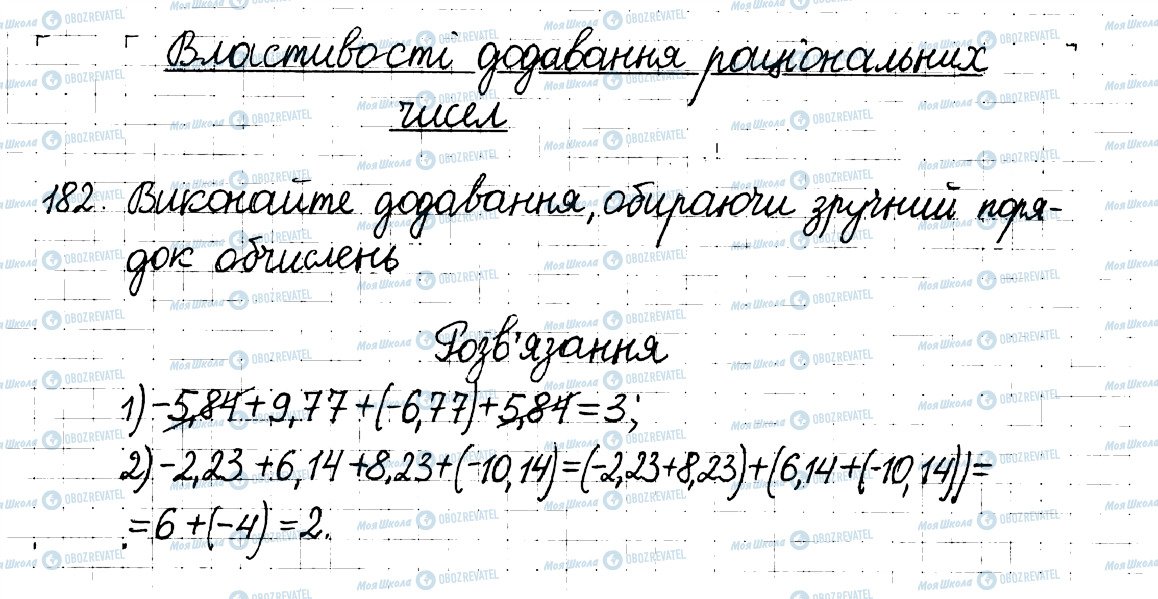 Властивості додавання раціональних
чисел
182. Виконайте додавання, обираючи зручний поря-
док обчислень
Розв'язання
1) -5,84 + 9,77 + (-6,77) + 5,84 = 3;
2) -2,23 + 6,14 + 8,23 + (-10,14) = (-2,23 + 8,23) + (6,14 + (-10,14)) =
= 6 + (-4) = 2.